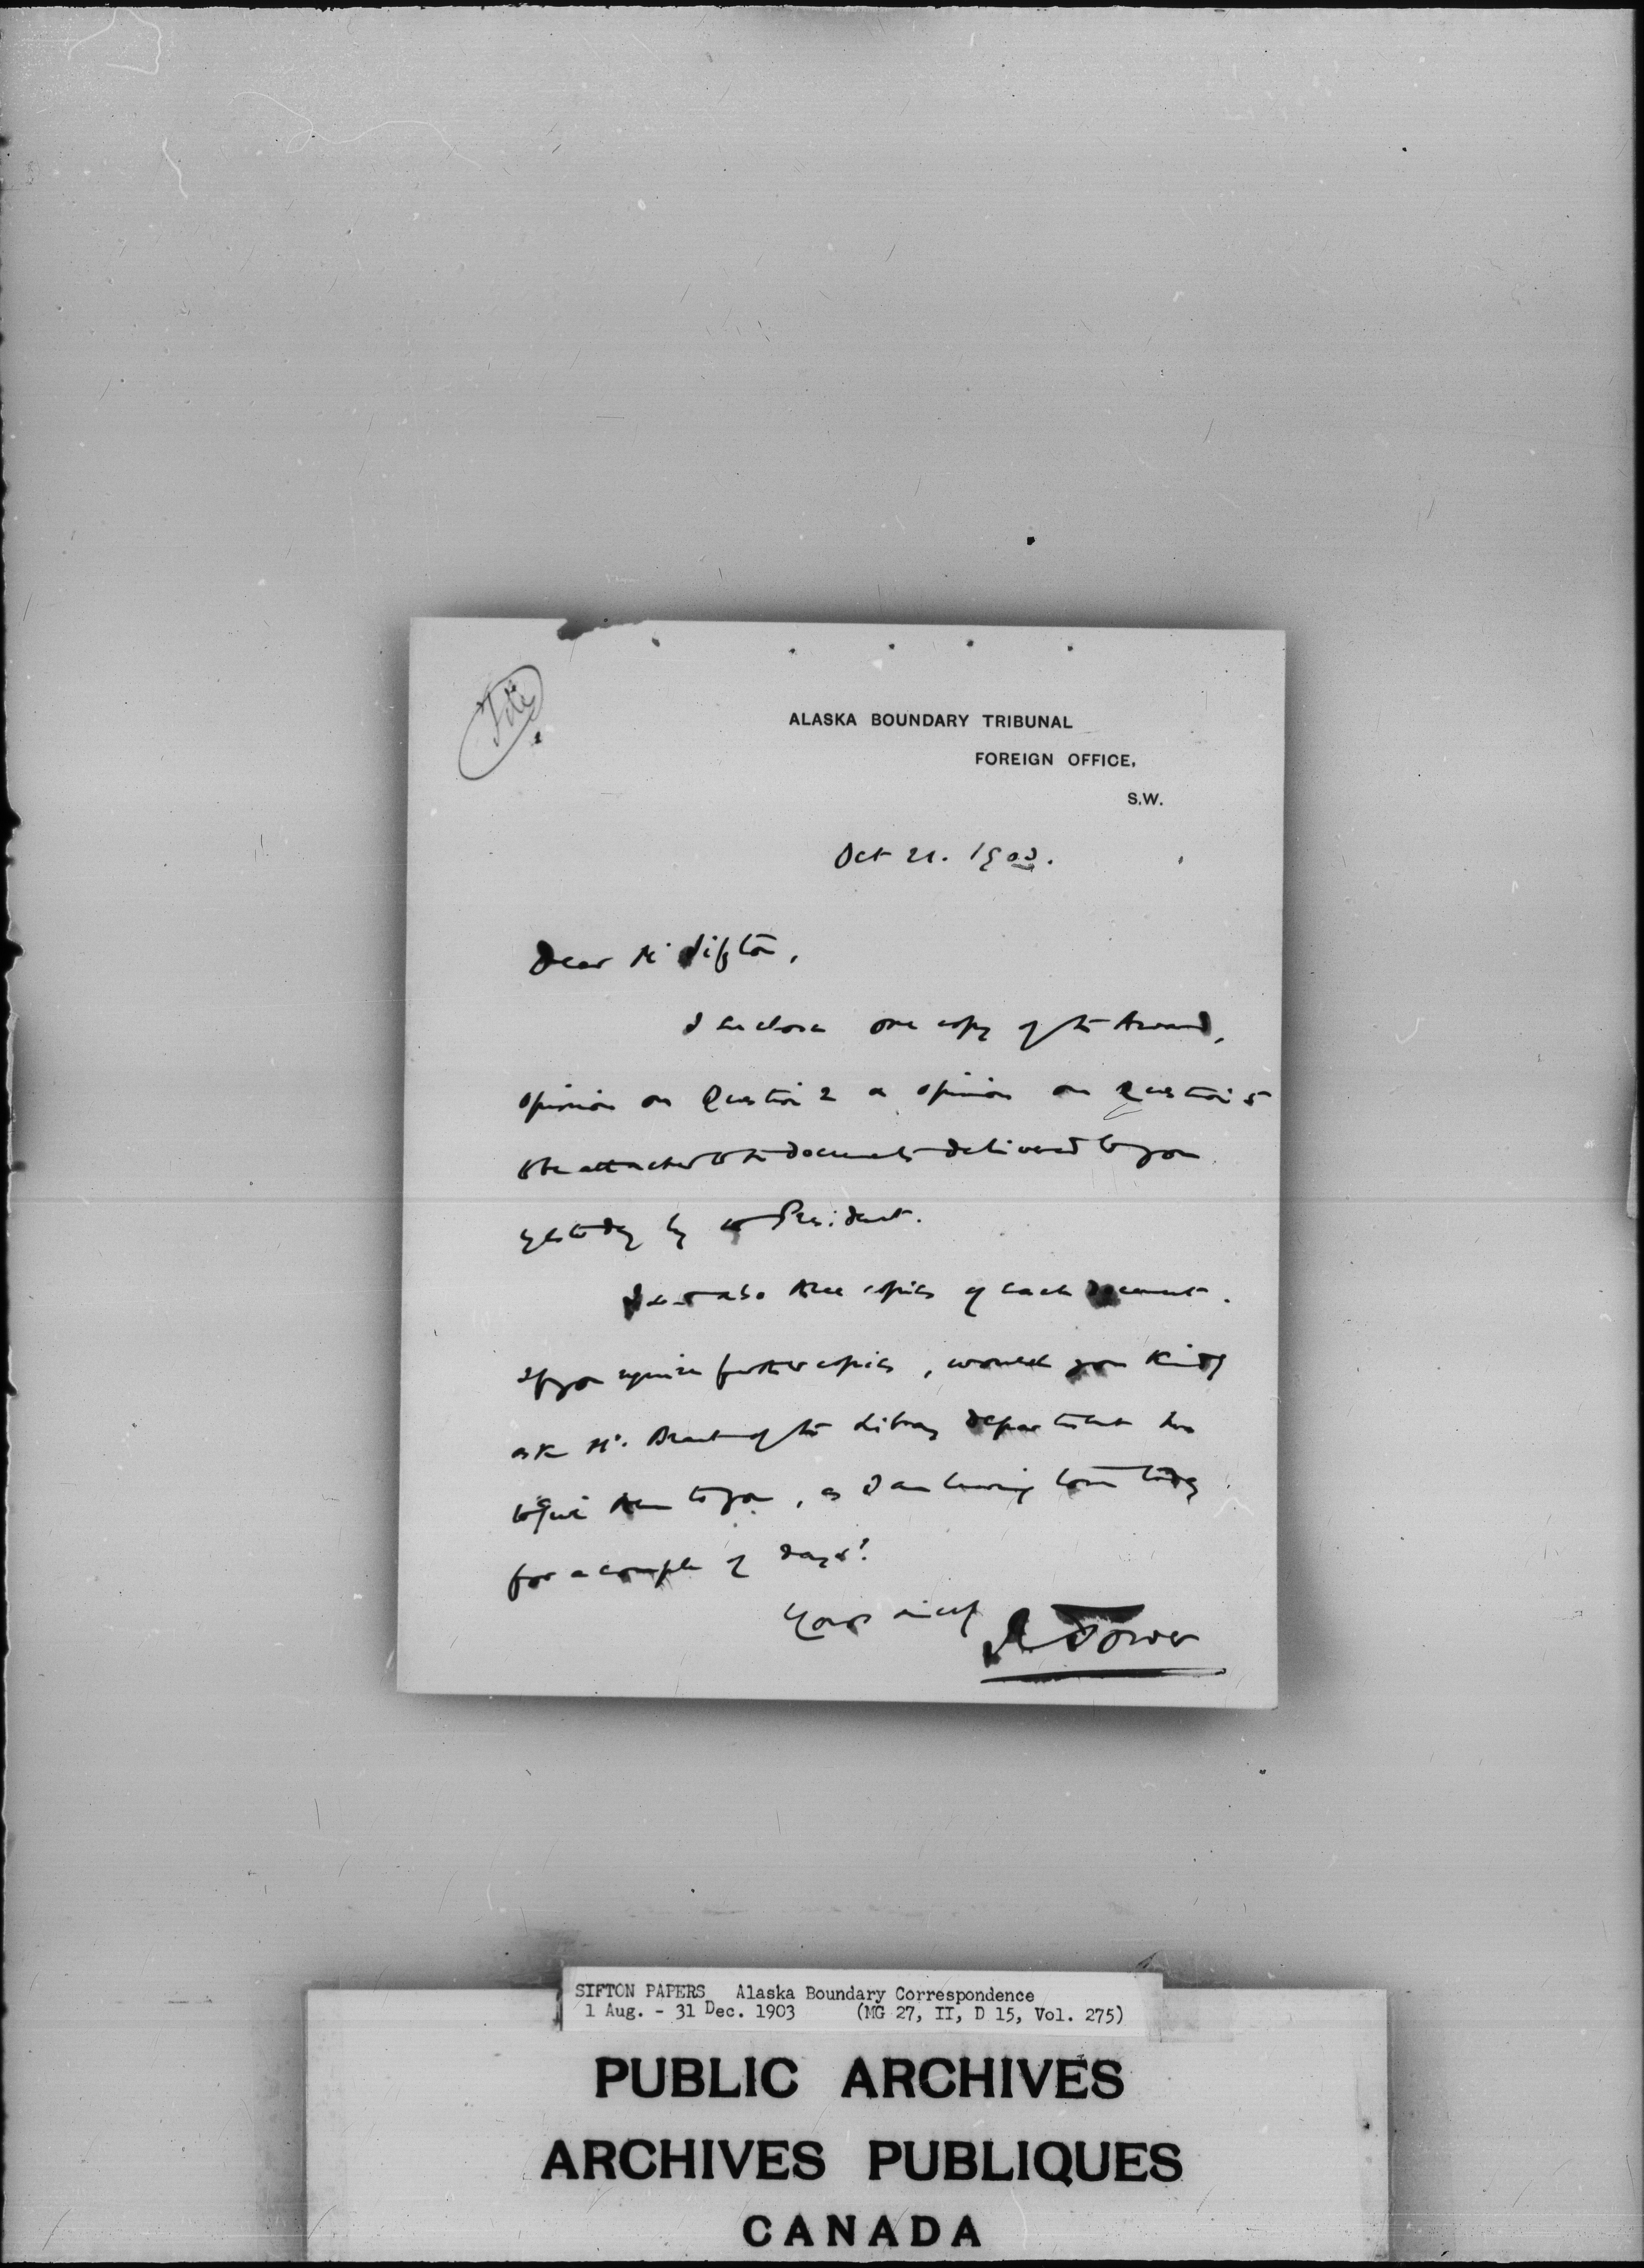 File
ALASKA BOUNDARY TRIBUNAL
FOREIGN OFFICE,
S.W.
Oct 21. 1903.
Dear Mr Sifton,
I enclose one copy of the Award,
opinion on Question 2 & opinion on Question 5
to be attached to the documents delivered to you
yesterday by the President.
I send also three copies of each document.
If you require further copies, would you kindly
ask Mr. Brant of the Library department here
to give them to you, as I am leaving town today
for a couple of days?
Yours sincely
R Tower
SIFTON PAPERS Alaska Boundary Correspondence
1 Aug. - 31 Dec. 1903 (MG 27, II, D 15, Vol. 275)
PUBLIC ARCHIVES
ARCHIVES PUBLIQUES
CANADA